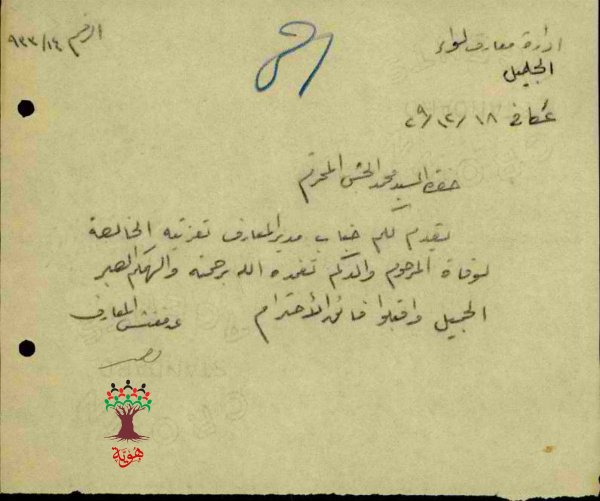 ادارة معارف لواء
الجليل
الرقم ٩٣٣/١٤
عكا في ١٨/١٢/٢٩
حضرة السيد محمد الحسن المحترم
يقدم لكم جناب مدير المعارف تعزيته الخالصة
لوفاة المرحوم والدكم تغمده الله برحمته والهمكم الصبر
الجميل واقبلوا فائق الأحترام
عن مفتش المعارف
هُوِيَّة